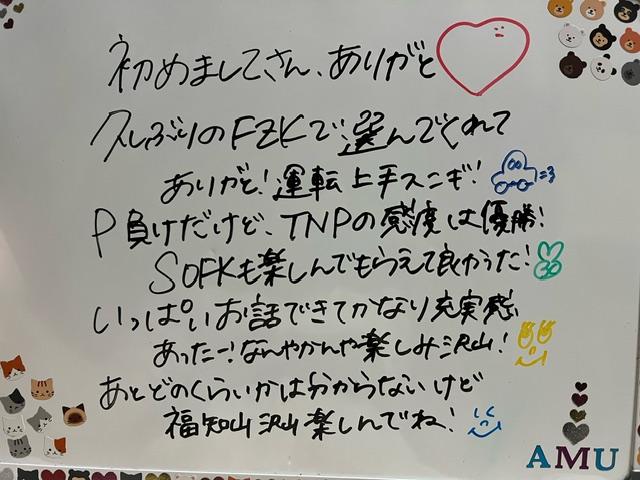 初めましてさん、ありがと
久しぶりのFZKで選んでくれて
ありがと!運転上手スニギ!
P負けだけど、TNPの感度は優勝!
SOFKも楽しんでもらえて良かった!
いっぱいお話できてかなり充実感
あったー!なんやかんや楽しみ沢山!
あとどのくらいかは分からないけど
福知山沢山楽しんでね!
AMU